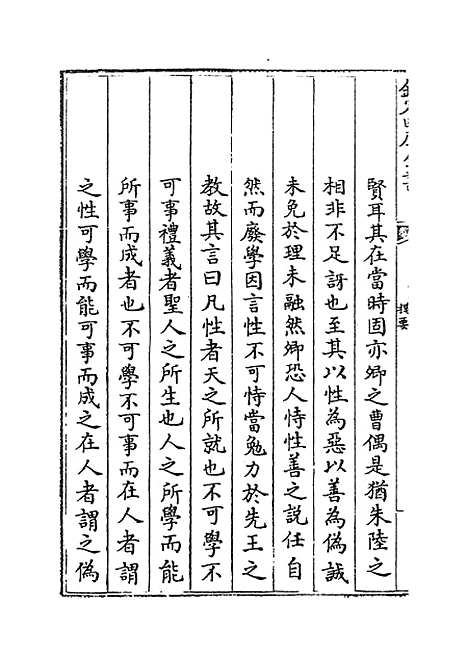 賢耳其在當時固亦卿之曹偶是猶朱陸之
相非不足訝也至其以性為惡以善為偽誠
未免於理未融然卿恐人恃性善之說任自
然而廢學因言性不可恃當勉力於先王之
教故其言曰凡性者天之所就也不可學不
可事禮義者聖人之所生也人之所學而能
所事而成者也不可學不可事而在人者謂
之性可學而能可事而成之在人者謂之偽